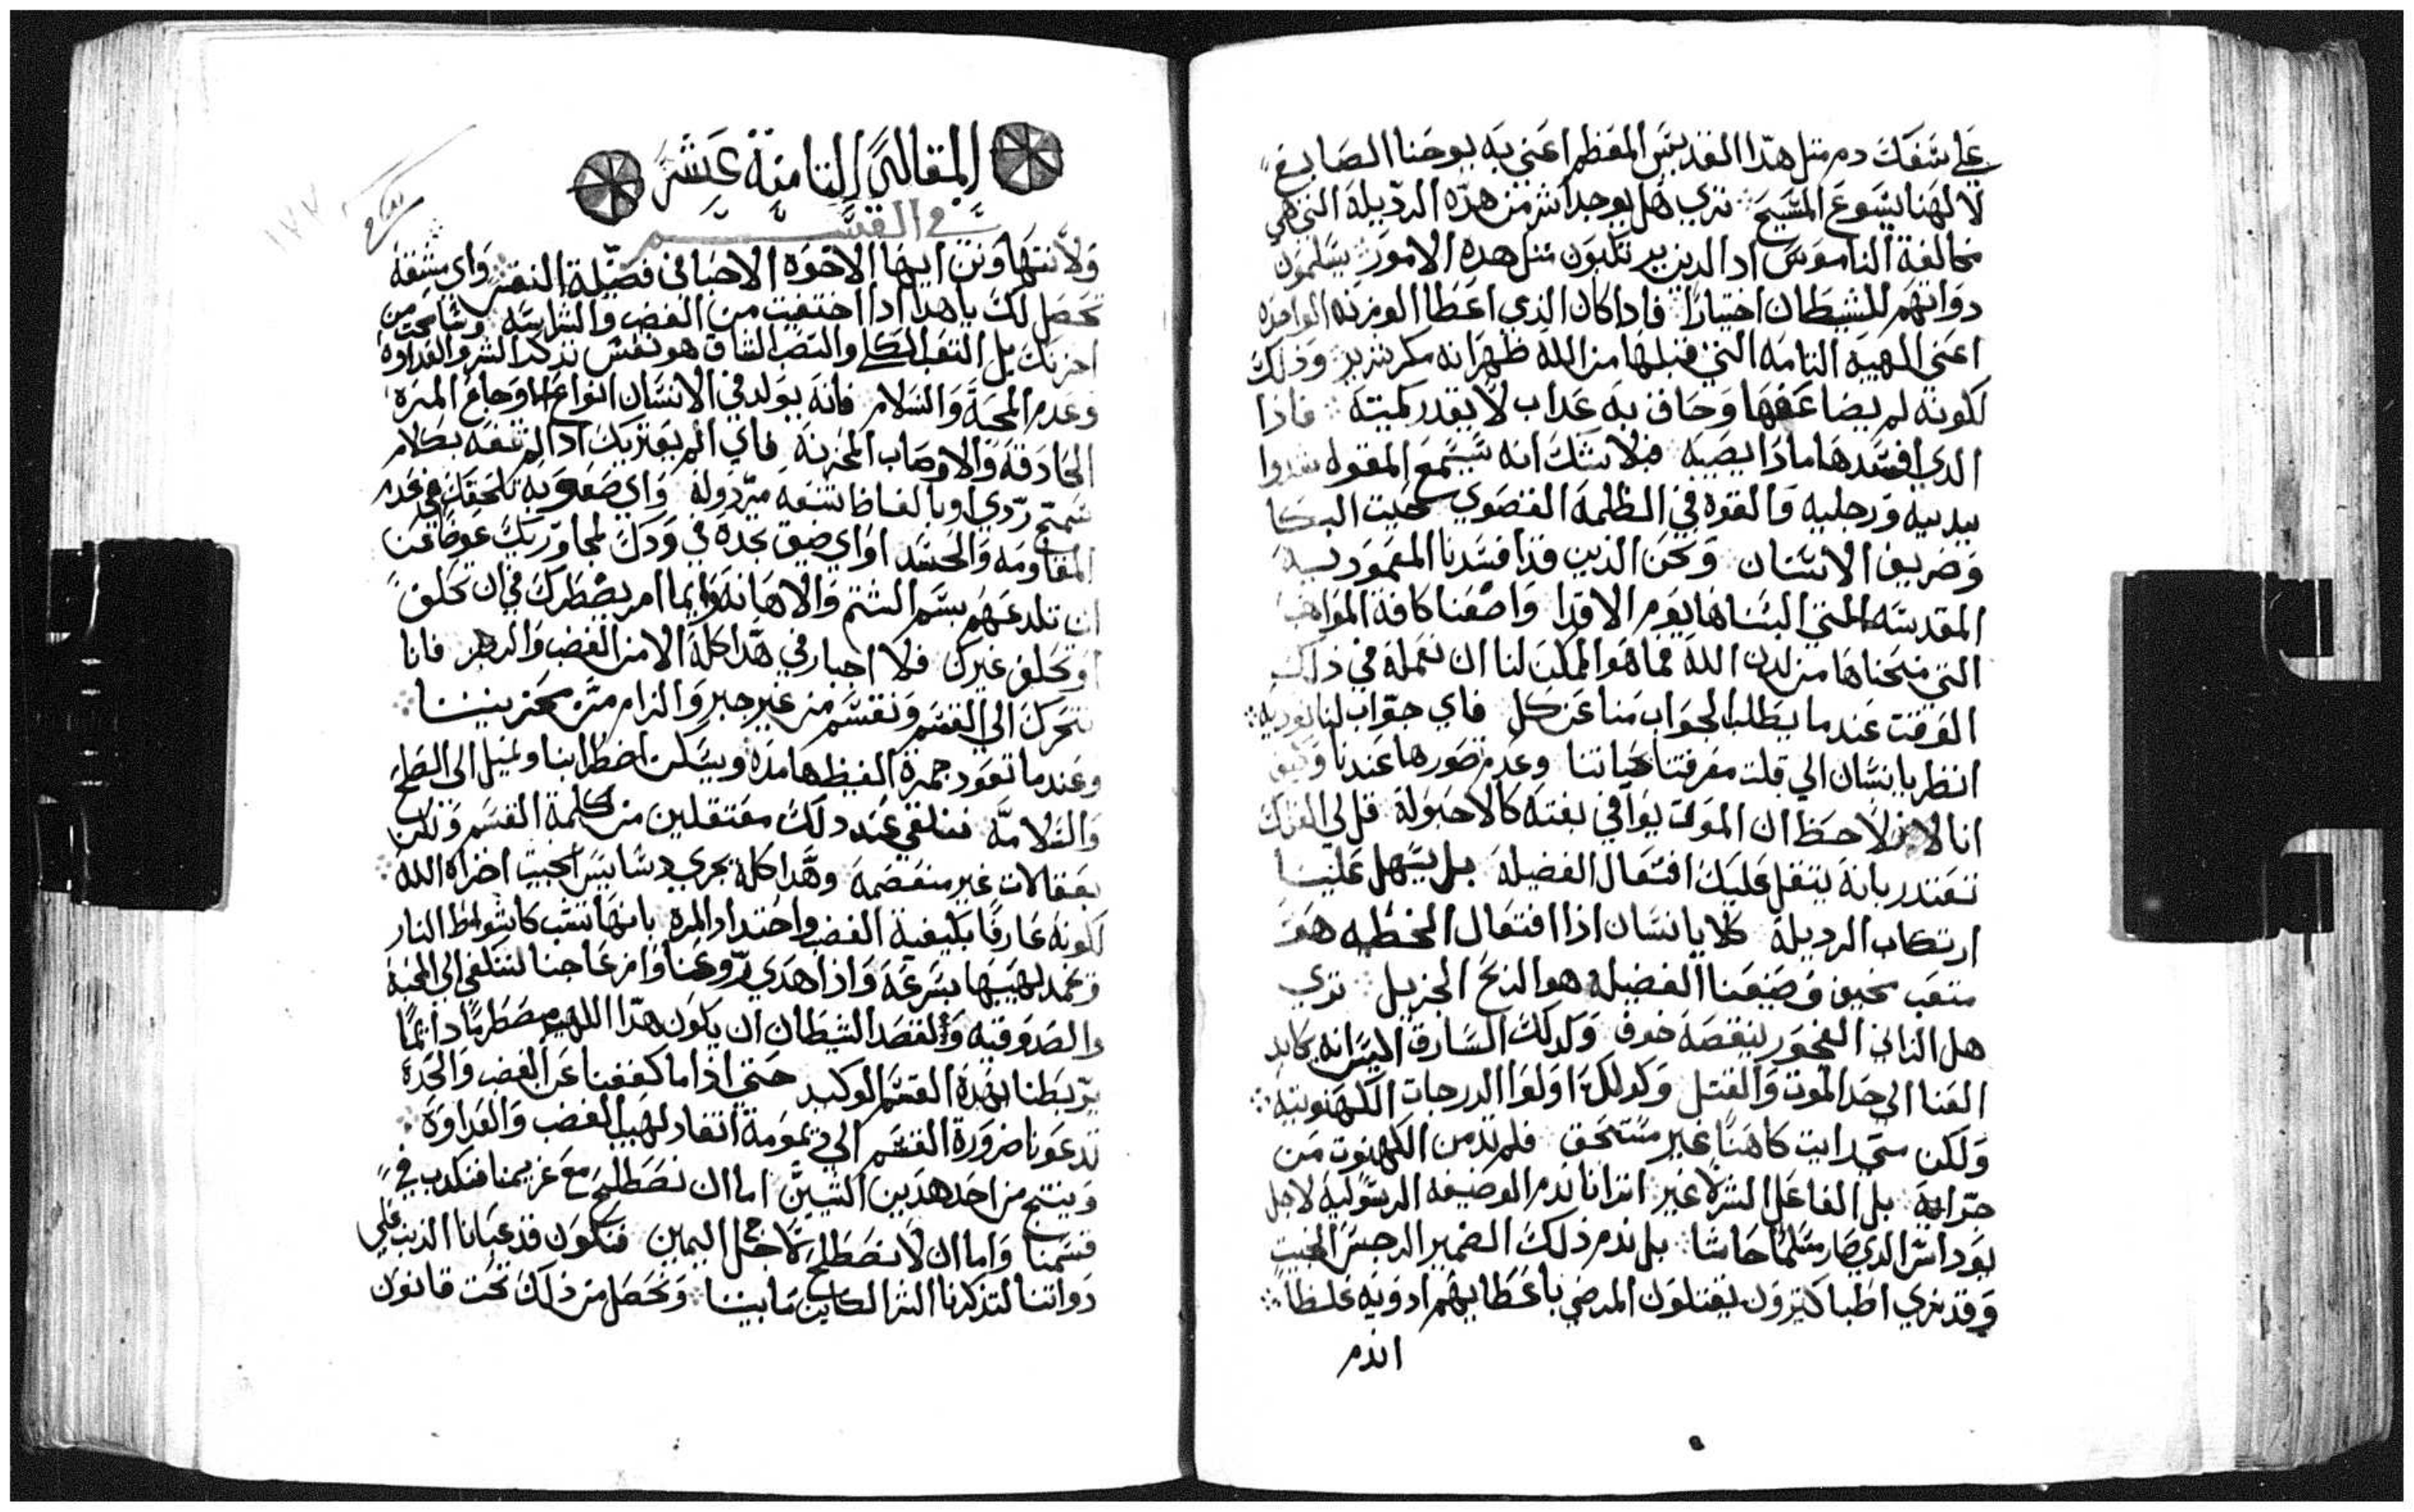 على سَفك دم مثل هدا القديس المعظم اعني به يوحنا الصابغ
لالهنا يسوع المسيح ؞ تري هل يوجد اشر من هده الرديلة التي هي
مخالفة الناموس اد الدين يرتكبون مثل هده الامور يسلمون
دواتهم للشيطان اختيارًا ؞ فادا كان الدي اعطا الوزنه الواحده
اعني الهبه التامه التي قبلها من الله ظهر انه مكر شرير وذلك
لكونه لم يضاعفها وحاق به عداب لا يقدر كميته ؞ فاذا
الدي افسدها مادا يصيبه فلا شك انه سيسمع المقوله شدوا
يديه ورجليه والقوه في الظلمه القصوي حيت البكا
وصريف الاسنان ونحن الذين قد افسدنا المعموديه
المقدسه التي البسناها يوم الاقدا واضعنا كافة المواهب
التي منحناها من لدن الله فما هو الممكن لنا ان نعمله في ذلك
الوقت عندما يطلب الجواب منا عن كل فاي جوّاب لنا نوديه ؞
انظر يا انسان الي قلت معرفتنا بحياتنا وعدم تصورها عندنا وكيف
انا الان لاحظ ان الموت يوافي بغته كالاحبولة قل لي العلك
تعتدر بانه يتقل عليك افتعال الفضيلة بل يسهل علينا
ارتكاب الرديلة كلا يا انسان اذا افتعال الخطيه هو
متعب مخيف وصنيعنا الفضيله هو الربح الجزيل ؞ تري
هل الزاني الفجور لينقصه خوف وكدلك السارق اليس انه يكابد
العنا الي حد الموت والقتل وكدلك اولوا الدرجات الكهنوتيه ؞
ولكن متي رايت كاهنًا غير مستحق فلم تدمن الكهنوت من
جرّايه بل الفاعل الشر لا غير اترانا ندم الوضيفه الرسوليه لاجل
يوداس الدي صار مسلمًا حاشا ؞ بل ندم ذلك الضمير الرجس الخبيت
وقد نري اطبا كتيرون يقتلون المرضي باعطايهم ادويه غلطًا ؞
اندم
المقالة التامنة عشر
في القسم
ولا نتهاونن ايها الاخوة الاحبا في فضيلة النفس واي مشقه
تحصل لك يا هدا ادا اختفيت من الغضب والشراسه وسامحت من
احزنك بل التعب الكلي والنصب الشاق هو نفس تذكر الشر والعداوه
وعدم المحبة والسلام فانه يولد في الانسان انواع الاوجاع المره
الحادقة والاوصاب المحزنة فاي الم يعتريك اذا لم تتفه بكلام
سمج ردي او بالفاظ سفه مرذولة واي صعوبه تلحقك في عدم
المقاومه والحسد او اي ضيق تجده في ودك لمجاوريك عوضًا عن
ان تلدعهم بسم الشتم والاهانة وايما امر يضطرك في ان تحلف
او تحلف غيرك فلا اجبار في هدا كله الا من الغضب والدهر فانا
نتحرك الي القسم ونقسم من غير جبر والزام متن يحزننا ؞
وعندما تعود جمرة الغيظ هامدة ويسكن اضطرابنا ونميل الي الصلح
والسلامه فنلفي عند دلك معتقلين من كلمة القسم ونكن
بعقالات غير منفصمه وهدا كله يجري دسايس الخبيت اخزاه الله ؞
لكونه عارفًا بكيفية الغضب واحتداد المره بانها تتب كاشواظ النار
وتخمد لهيبها بسرعة واذا هدي روعنا وانزعاجنا لنلفي الي المحبة
والصدوقيه ولقصد الشيطان ان يكون هدا اللهيب مضطرمًا دايمًا
يربطنا بهده القسم الوكيد حتي اذا ما كففنا عن الغضب والحدة
تدعونا ضرورة القسم الي ديمومة اتقاد لهيب الغضب والعداوة ؞
وينتج من احد هدين الشيين اما ان نصطلح مع غريمنا فنكدب في
قسمنا واما ان لا نصطلح لاجل اليمين فنكون قد عبانا الدينب علي
دواتنا لتذكرنا الشر الكاين ما بيننا ؞ ونحصل من ذلك تحت قانون